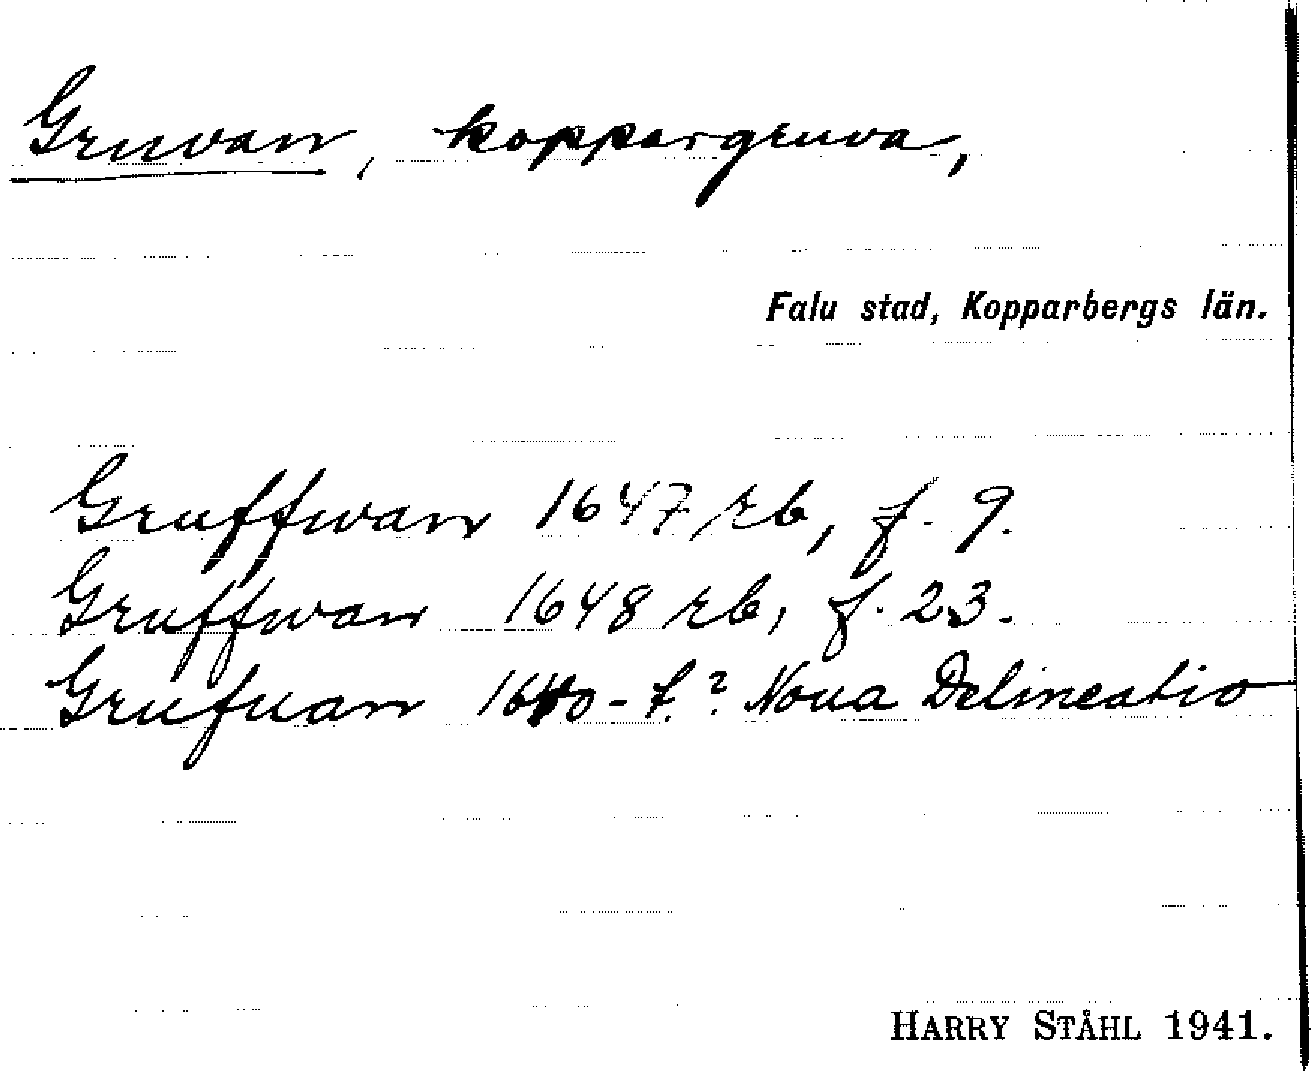 Gruvan, koppargruva,
Falu stad, Kopparbergs län.
Gruffwan 1647 rb, f. 9.
Gruffwan 1648 rb, f. 23.
Grufuan 1640-t.? Noua Delineatio
HARRY STÅHL 1941.